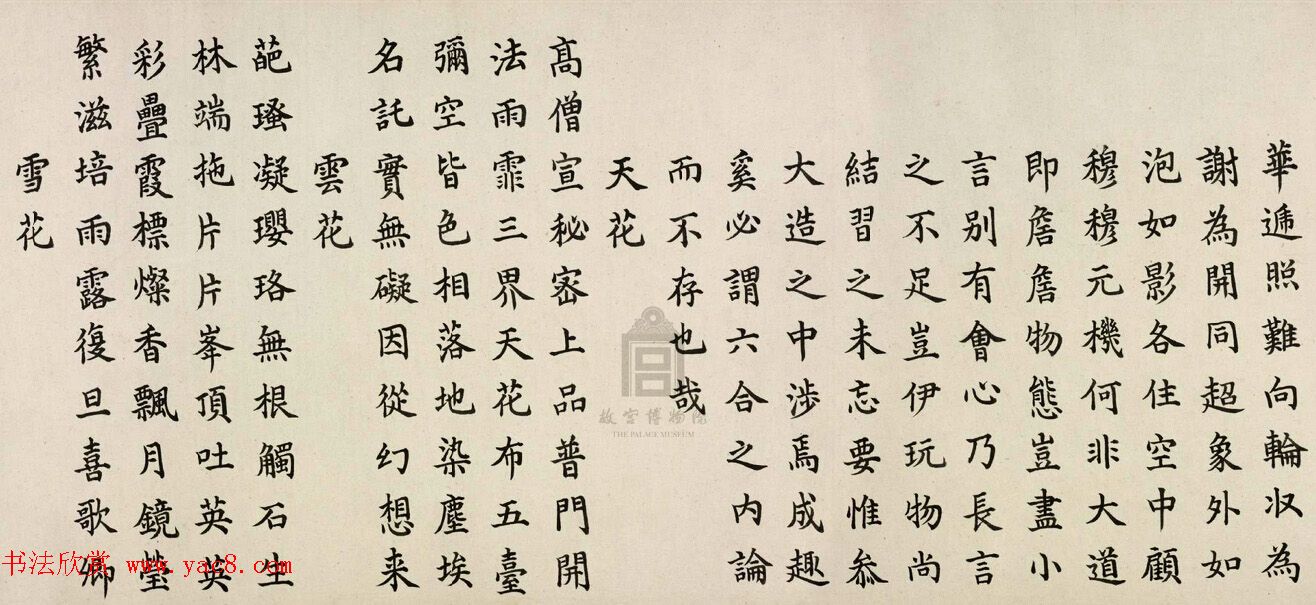 華遞照難向輪収為
謝為開同超象外如
泡如影各住空中顧
穆穆元機何非大道
即詹詹物態豈盡小
言別有會心乃長言
之不足豈伊玩物尚
結習之未忘要惟叅
大造之中涉焉成趣
奚必謂六合之內論
而不存也哉
天花
髙僧宣秘密上品普門開
法雨霏三界天花布五臺
彌空皆色相落地染塵埃
名託實無礙因從幻想来
雲花
葩瑵凝瓔珞無根觸石生
林端拖片片峯頂吐英英
彩疊霞標燦香飄月鏡瑩
繁滋培雨露復旦喜歌卿
雪花
故宫博物院
THE PALACE MUSEUM
书法欣赏 www.yac8.com